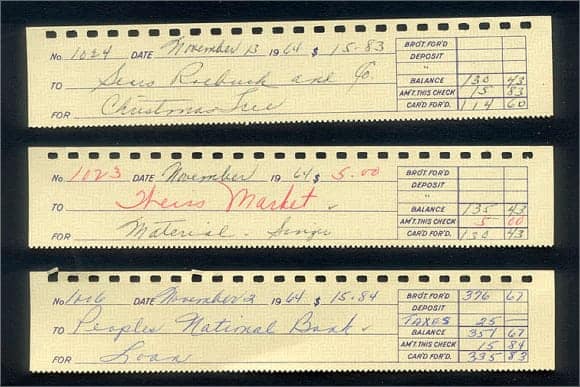 No 1024 DATE November 13 1964 $ 15-83 BRO'T. FOR'D
DEPOSIT
"
TO Sears Roebuck and Co. BALANCE 130 43
AM'T. THIS CHECK 15 83
FOR Christmas Tree CAR'D. FOR'D. 114 60
No 1023 DATE November 1964 $ 5-00 BRO'T. FOR'D
DEPOSIT
"
TO Market BALANCE 135 43
AM'T. THIS CHECK 5 00
FOR Material - CAR'D FOR'D. 130 43
No 1016 DATE November 2 1964 $ 15-84 BRO'T. FOR'D 376 67
DEPOSIT
TAXES 25 —
TO Peoples National Bank BALANCE 351 67
AM'T. THIS CHECK 15 84
FOR Loan CAR'D. FOR'D. 335 83